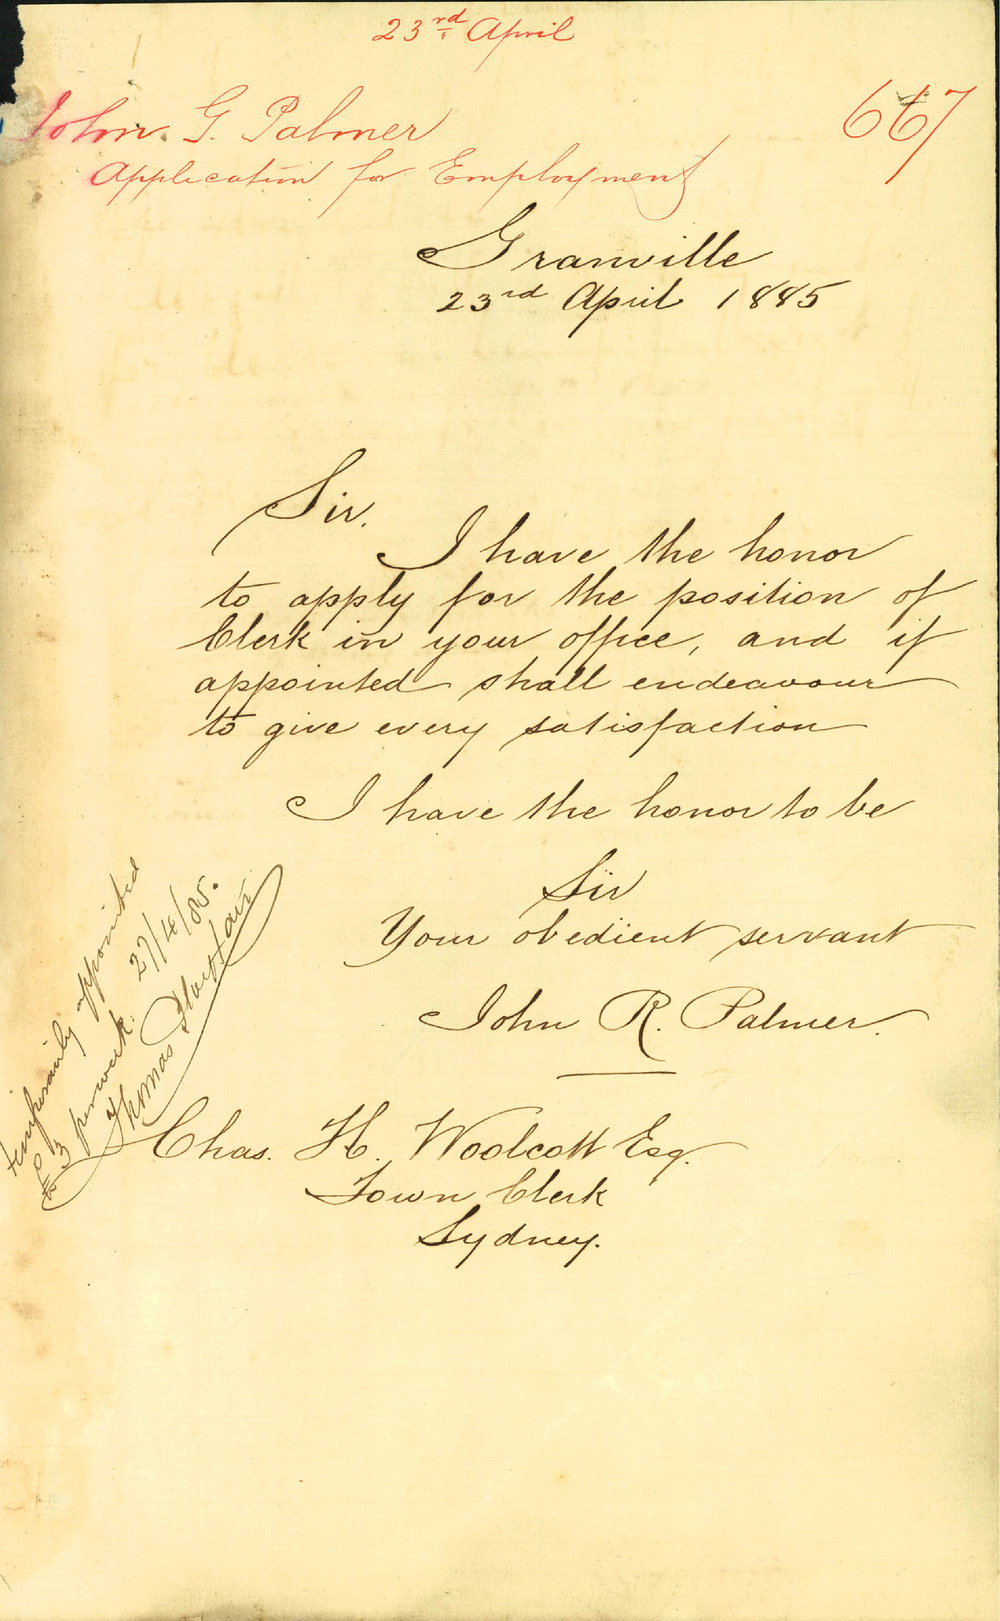 23rd April
John G. Palmer
667
Application for Employment
Granville
23rd April 1885
Sir.
I have the honor
to apply for the position of
Clerk in your office, and if
appointed shall endeavour
to give every satisfaction
I have the honor to be
Sir
Your obedient servant
John R. Palmer.
Chas. H. Woolcott Esq.
Town Clerk
Sydney.
temporarily appointed
£3 per week. 27/4/85.
Thomas